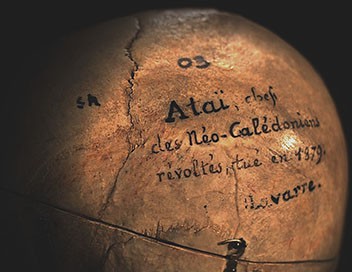 03
SR
Ataï, chef
des Néo-Calédoniens
révoltés, tué en 1879.
Navarre.